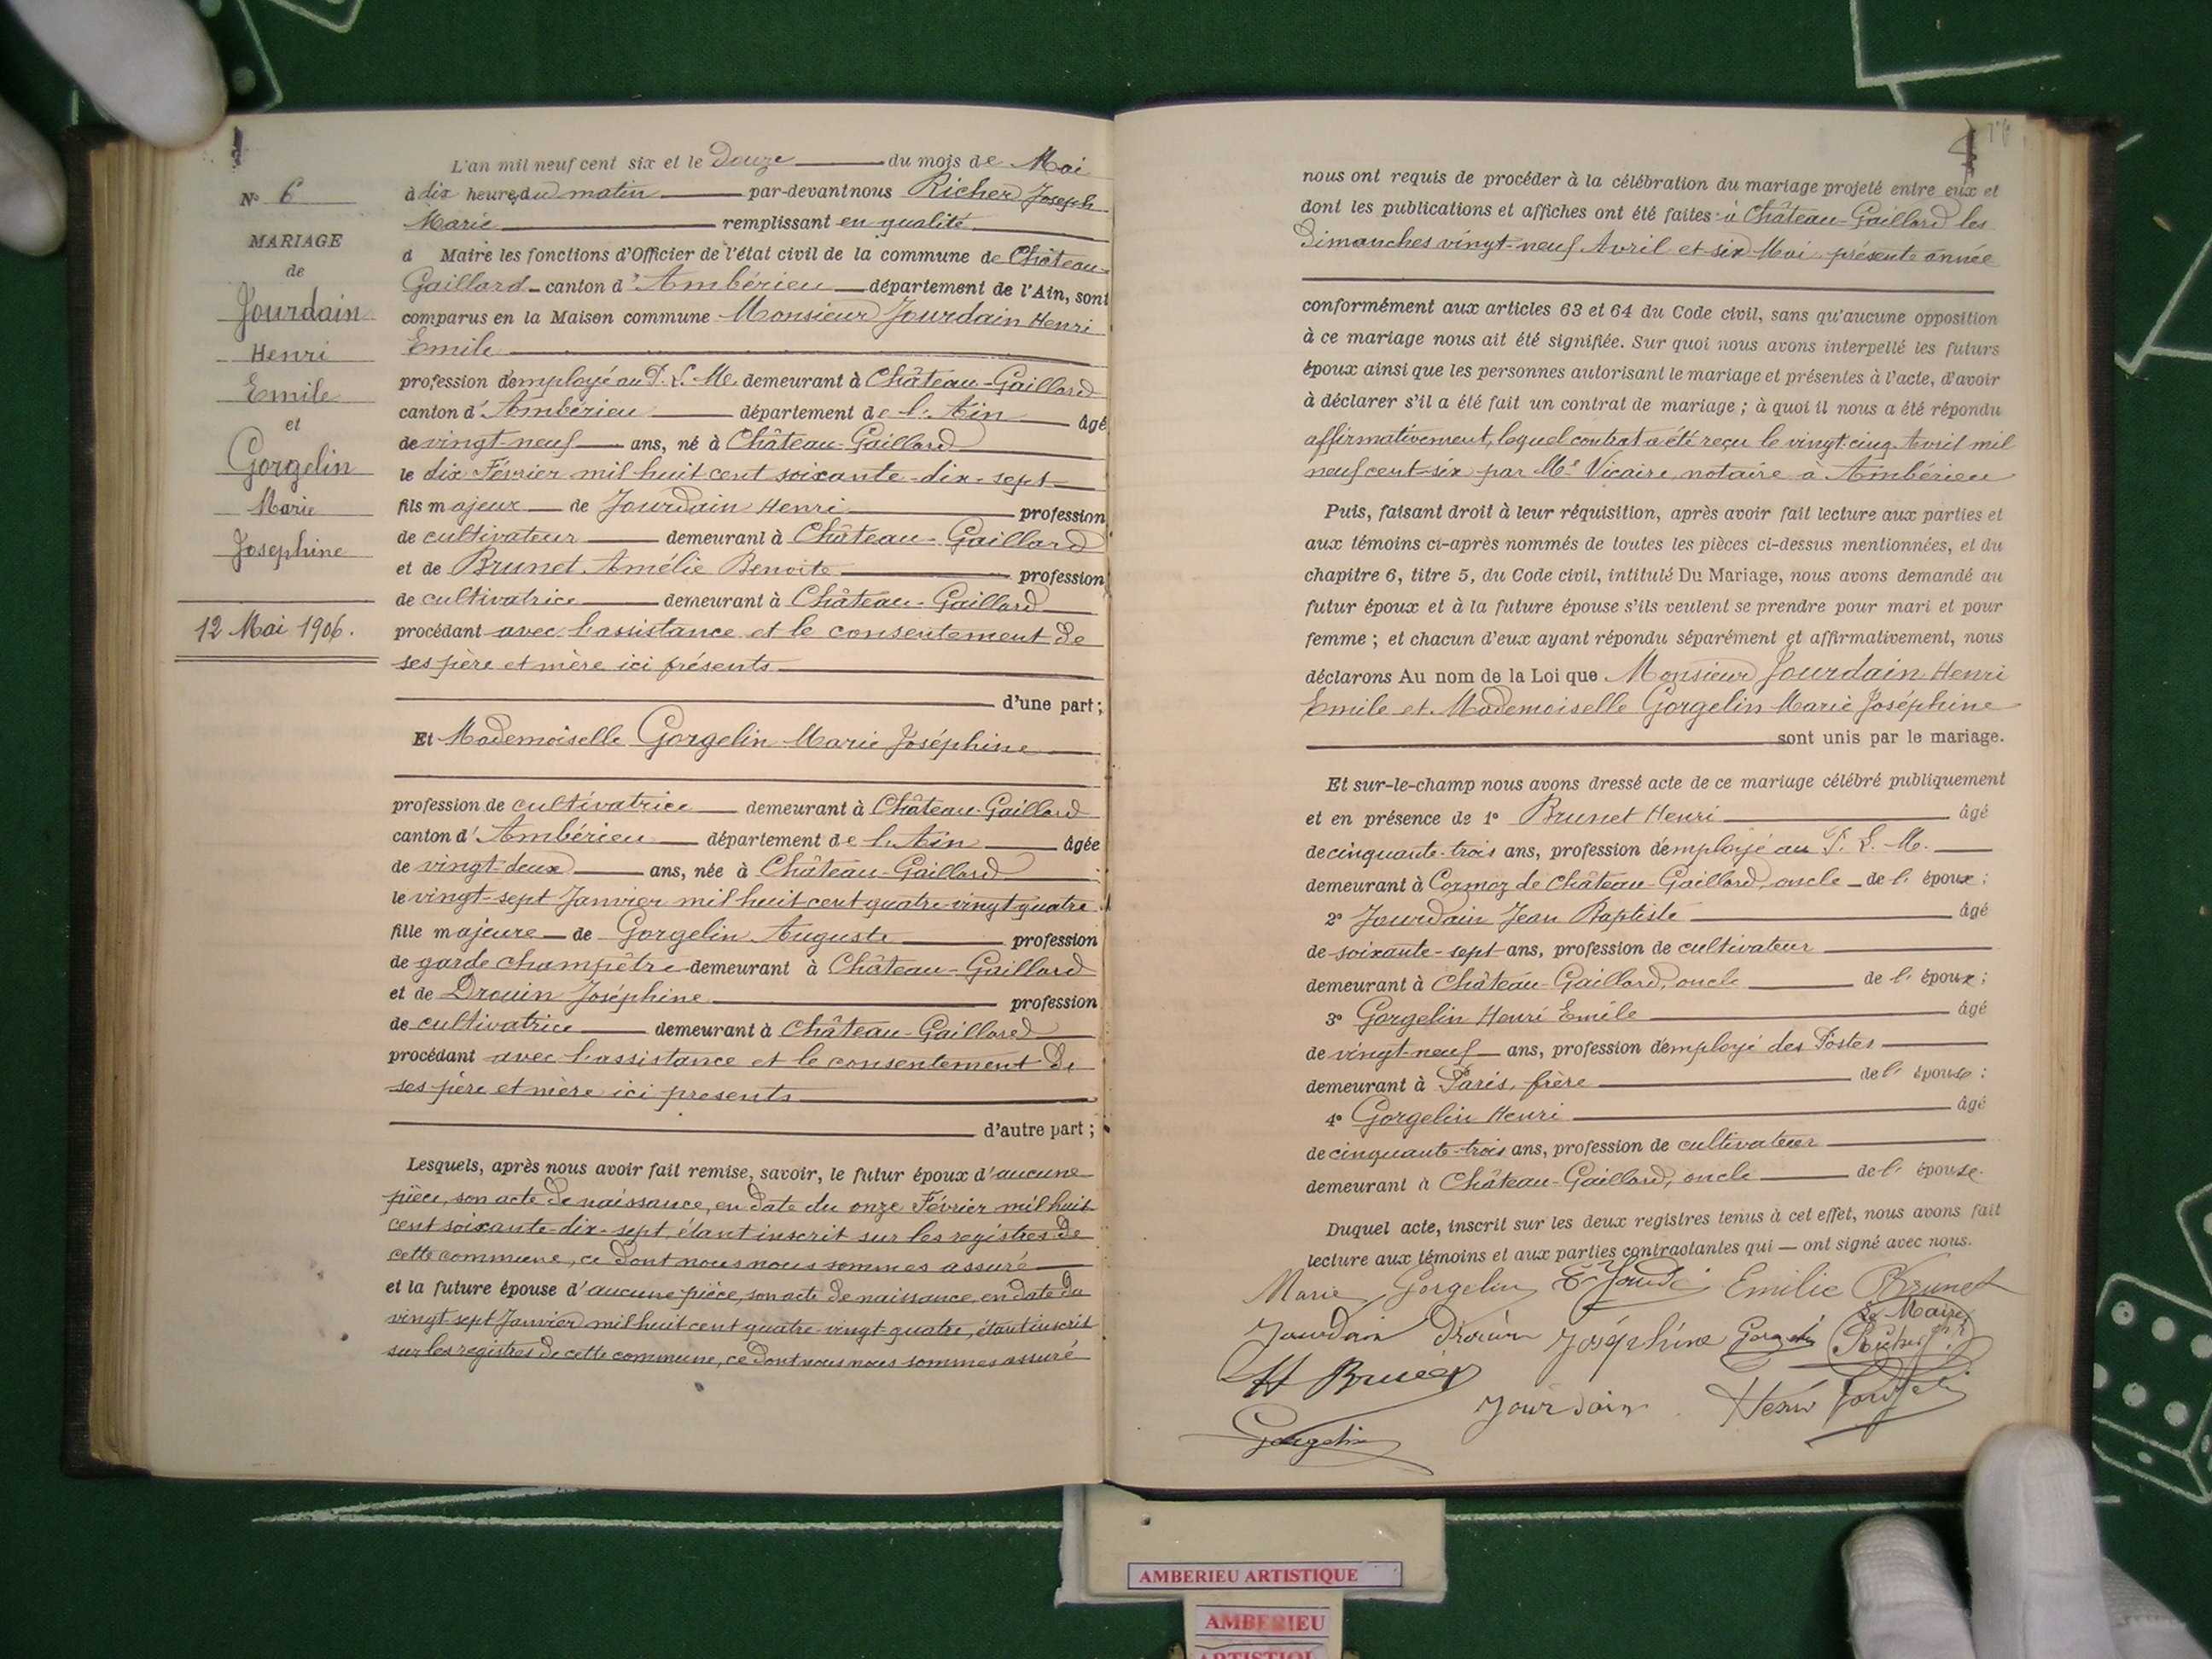 N° 6
MARIAGE
de
Jourdain
Henri
Emile
et
Gorgelin
Marie
Josephine
12 Mai 1906.
L'an mil neuf cent six et le Douze du mois de Mai
à dix heures du matin par-devant nous Richer Joseph
Marie remplissant en qualité
d Maire les fonctions d'Officier de l'état civil de la commune de Château-
Gaillard canton d'Ambérieu département de l'Ain, sont
comparus en la Maison commune Monsieur Jourdain Henri
Emile
profession d'employé au P. L. M. demeurant à Château-Gaillard
canton d'Ambérieu département de l'Ain âgé
de vingt-neuf ans, né à Château-Gaillard
le dix Février mil huit cent soixante-dix-sept
fils majeur de Jourdain Henri profession
de cultivateur demeurant à Château-Gaillard
et de Brunet Amélie Benoite profession
de cultivatrice demeurant à Château-Gaillard
procédant avec l'assistance et le consentement de
ses père et mère ici présents
d'une part;
Et Mademoiselle Gorgelin Marie Joséphine
profession de cultivatrice demeurant à Château-Gaillard
canton d'Ambérieu département de l'Ain âgée
de vingt-deux ans, née à Château-Gaillard
le vingt-sept Janvier mil huit cent quatre-vingt-quatre
fille majeure de Gorgelin Auguste profession
de garde champêtre demeurant à Château-Gaillard
et de Drouin Joséphine profession
de cultivatrice demeurant à Château-Gaillard
procédant avec l'assistance et le consentement de
ses père et mère ici presents
d'autre part;
Lesquels, après nous avoir fait remise, savoir, le futur époux d'aucune
pièce, son acte de naissance, en date du onze Février mil huit
cent soixante-dix-sept, étant inscrit sur les registres de
cette commune, ce dont nous nous sommes assuré
et la future épouse d'aucune pièce, son acte de naissance, en date du
vingt-sept Janvier mil huit cent quatre-vingt-quatre, étant inscrit
sur les registres de cette commune, ce dont nous nous sommes assuré
nous ont requis de procéder à la célébration du mariage projeté entre eux et
dont les publications et affiches ont été faites à Château-Gaillard les
Dimanches vingt-neuf Avril et six Mai présente année
conformément aux articles 63 et 64 du Code civil, sans qu'aucune opposition
à ce mariage nous ait été signifiée. Sur quoi nous avons interpellé les futurs
époux ainsi que les personnes autorisant le mariage et présentes à l'acte, d'avoir
à déclarer s'il a été fait un contrat de mariage; à quoi il nous a été répondu
affirmativement, lequel contrat a été reçu le vingt-cinq Avril mil
neuf cent six par Me Vicaire, notaire à Ambérieu
Puis, faisant droit à leur réquisition, après avoir fait lecture aux parties et
aux témoins ci-après nommés de toutes les pièces ci-dessus mentionnées, et du
chapitre 6, titre 5, du Code civil, intitulé Du Mariage, nous avons demandé au
futur époux et à la future épouse s'ils veulent se prendre pour mari et pour
femme; et chacun d'eux ayant répondu séparément et affirmativement, nous
déclarons Au nom de la Loi que Monsieur Jourdain Henri
Emile et Mademoiselle Gorgelin Marie Joséphine
sont unis par le mariage.
Et sur-le-champ nous avons dressé acte de ce mariage célébré publiquement
et en présence de 1° Brunet Henri âgé
de cinquante-trois ans, profession d'employé au P. L. M.
demeurant à Cormoz de Château-Gaillard, oncle de l'époux;
2° Jourdain Jean Baptiste âgé
de soixante-sept ans, profession de cultivateur
demeurant à Château-Gaillard, oncle de l'époux;
3° Gorgelin Henri Emile âgé
de vingt-neuf ans, profession d'employé des Postes
demeurant à Paris, frère de l'épouse;
4° Gorgelin Henri âgé
de cinquante-trois ans, profession de cultivateur
demeurant à Château-Gaillard, oncle de l'épouse.
Duquel acte, inscrit sur les deux registres tenus à cet effet, nous avons fait
lecture aux témoins et aux parties contractantes qui ont signé avec nous.
Marie Gorgelin Emilie Brunet
Jourdain Drouin Joséphine Le Maire
H Brunet Jourdain Henri
Gorgelin
AMBERIEU ARTISTIQUE
AMBERIEU